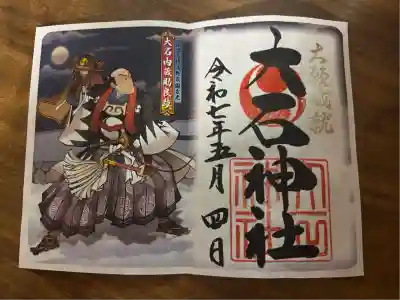 大願成就
大石神社
令和七年五月四日
大石内蔵助良雄